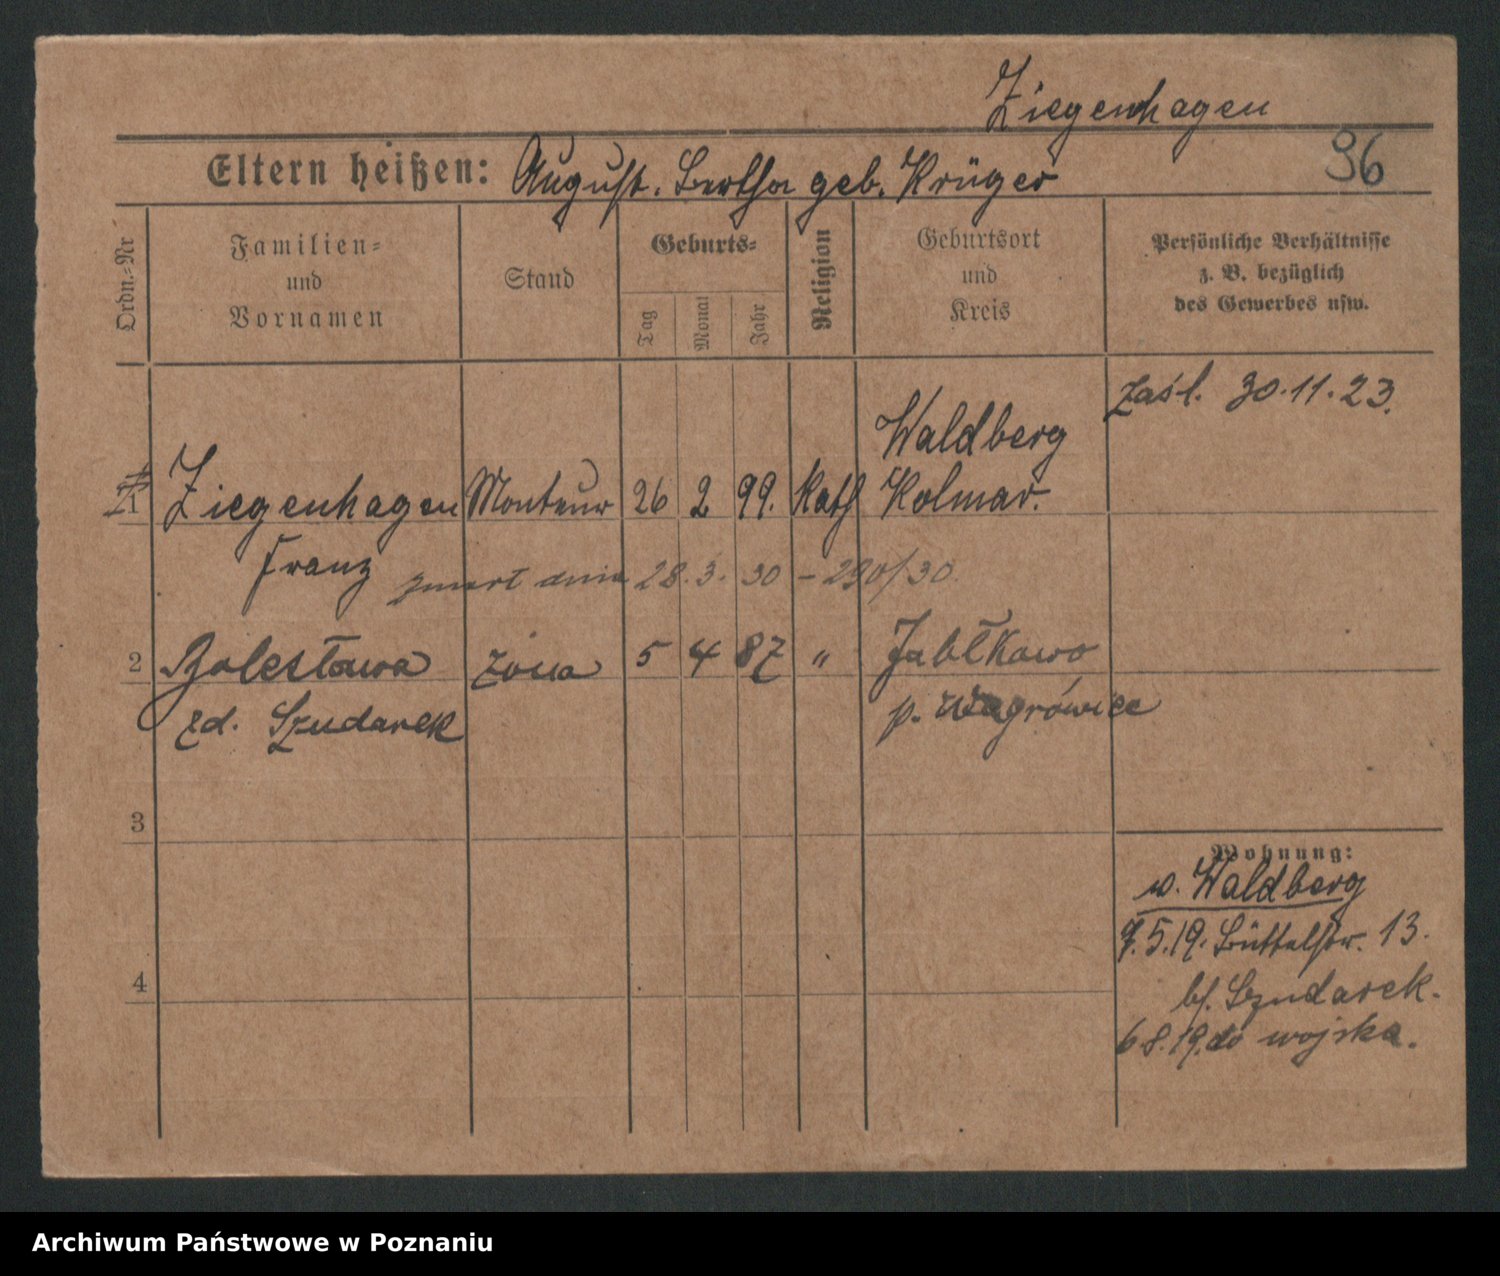 Ziegenhagen
Eltern heißen: August. Bertha geb. Krüger
96
Ordn.-Nr
Familien- und Vornamen
Stand
Geburts-
Tag
Monat
Jahr
Religion
Geburtsort und Kreis
Persönliche Verhältnisse
z. B. bezüglich
des Gewerbes usw.
zaśl. 30.11.23.
Waldberg
1 Ziegenhagen Monteur 26 2 99. kath Kolmar.
Franz zmarł dnia 28.3.30 – 290/30.
2 Bolesława żona 5 4 87 " Jabłkowo
zd. Szudarek p. Wągrówiec
3
4
Wohnung:
v. Waldberg
7.5.19. Büttelstr. 13.
bf. Szudarek.
6.8.19. do wojska.
Archiwum Państwowe w Poznaniu